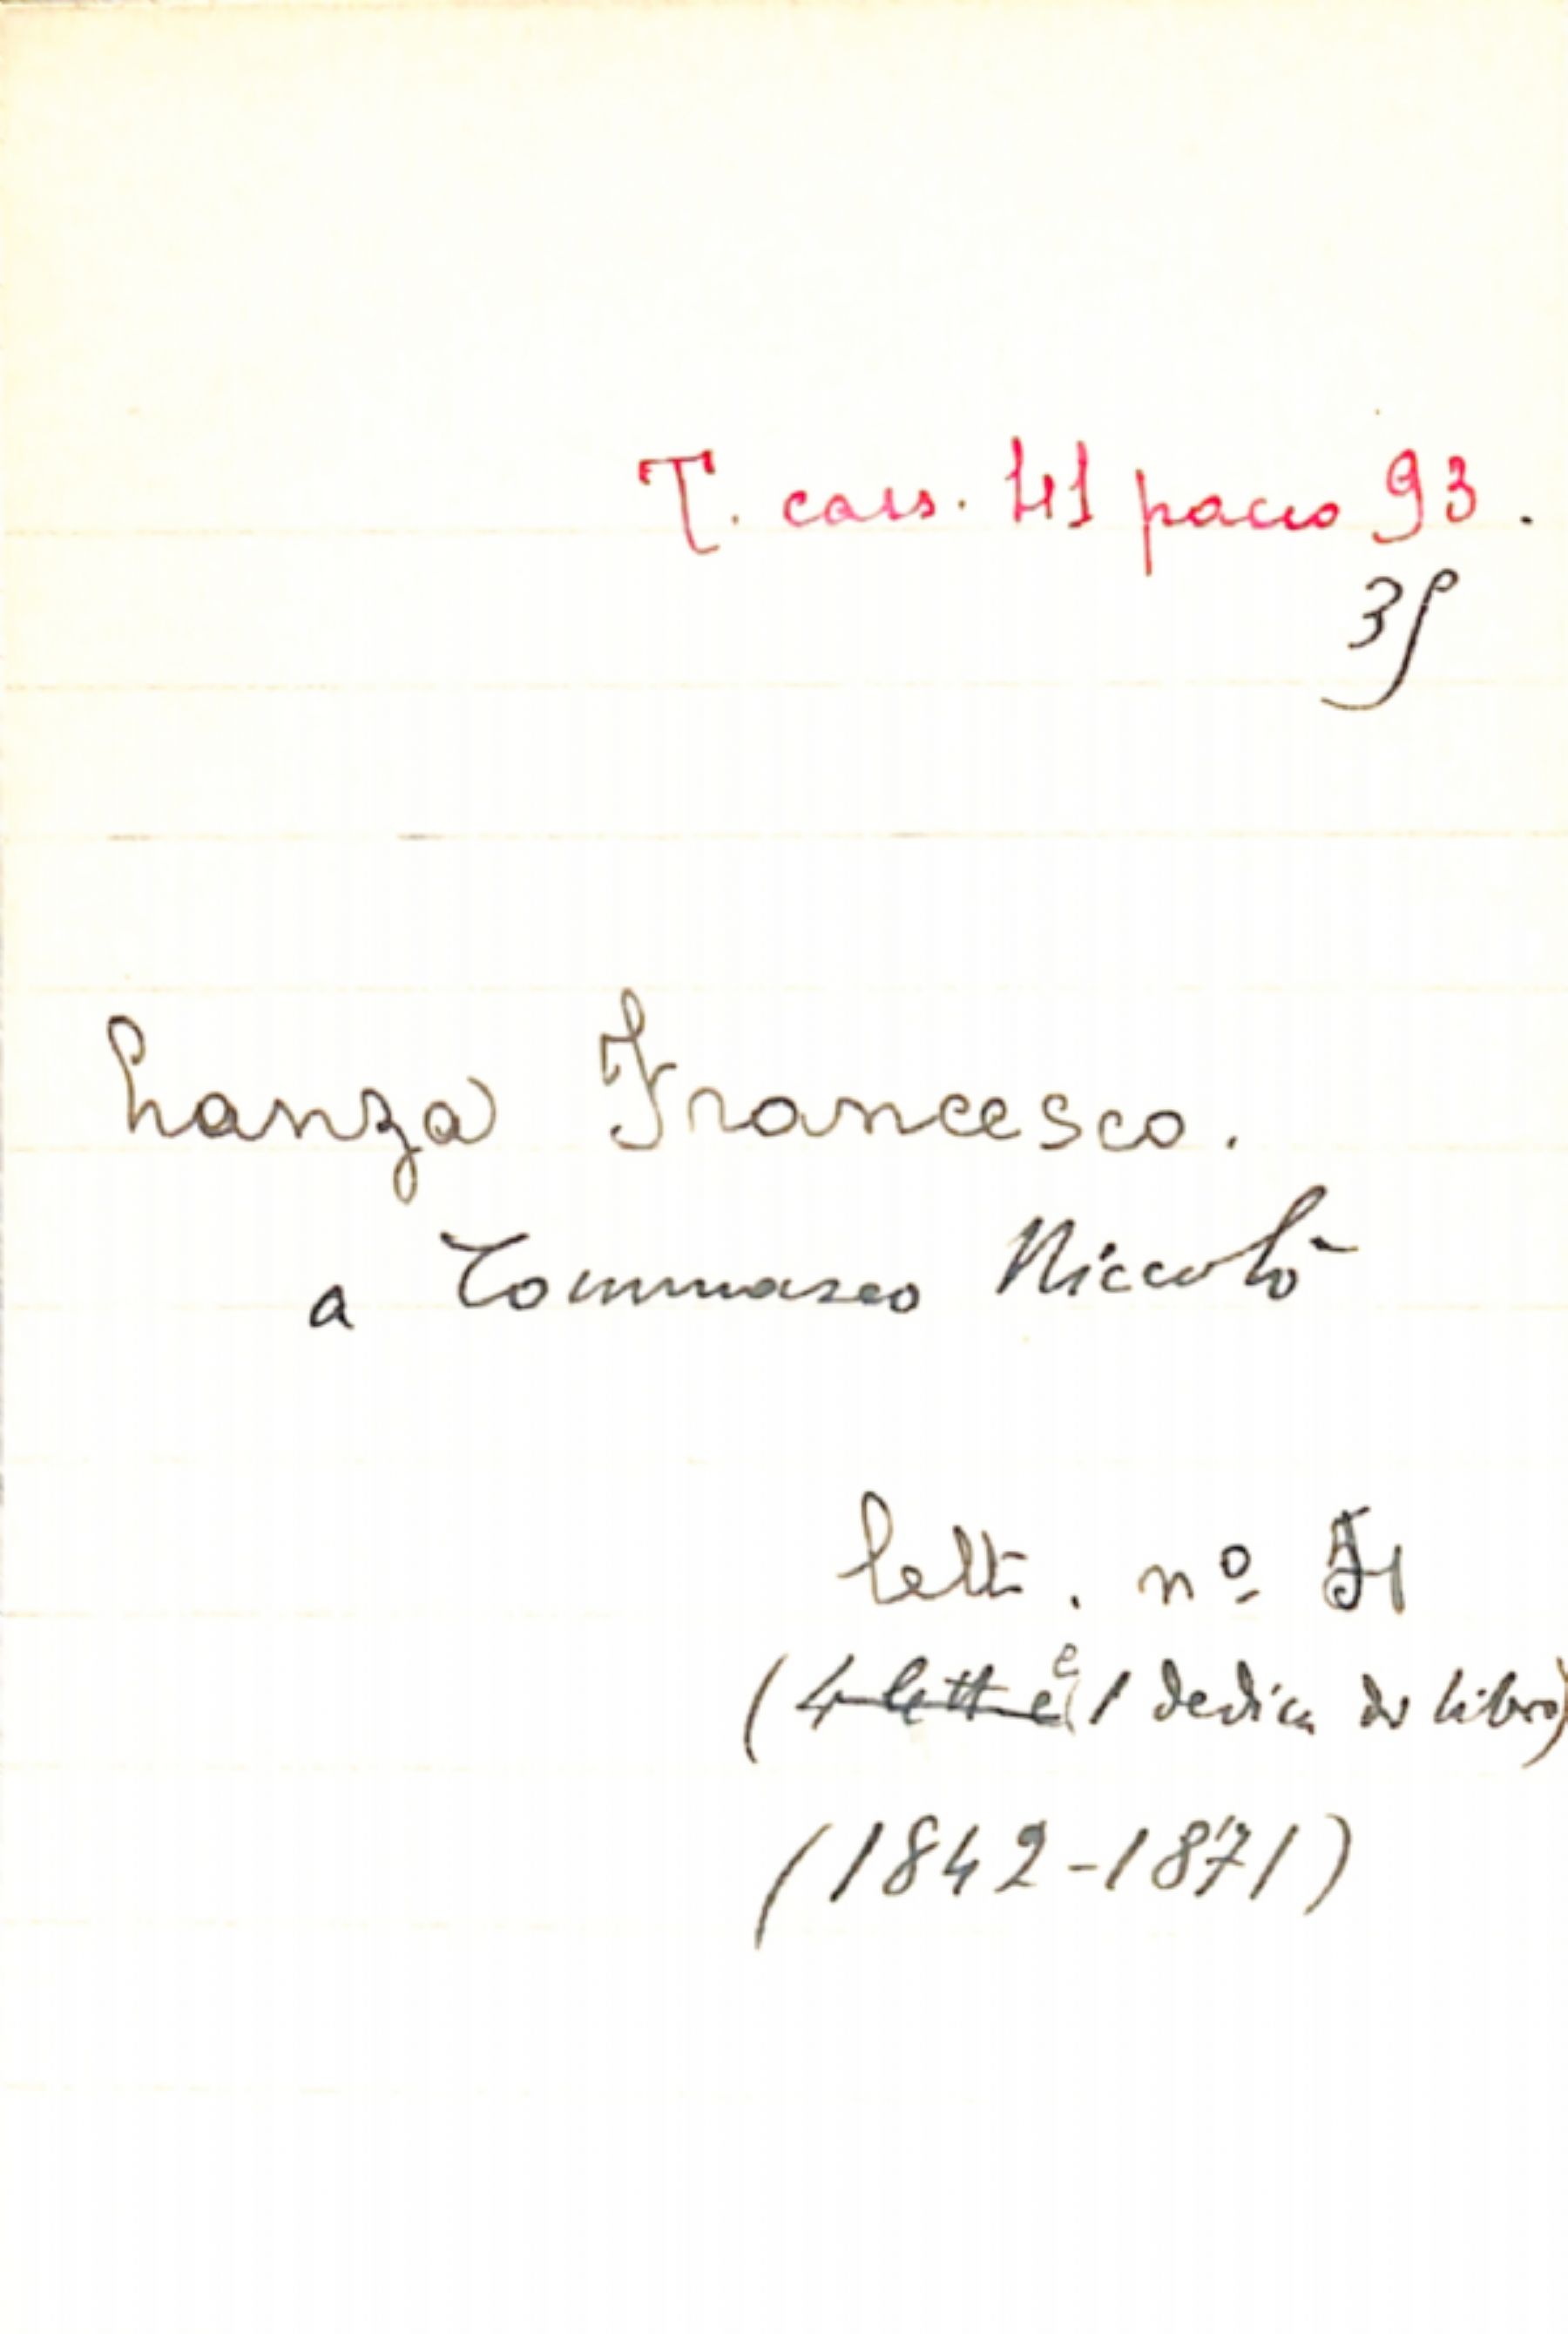 T. cass. 41 pacco 93.
35
Lanza Francesco.
a Tommaseo Niccolò
lett. nº
(4 lett e e 1 dedica di libro)
(1842-1871)